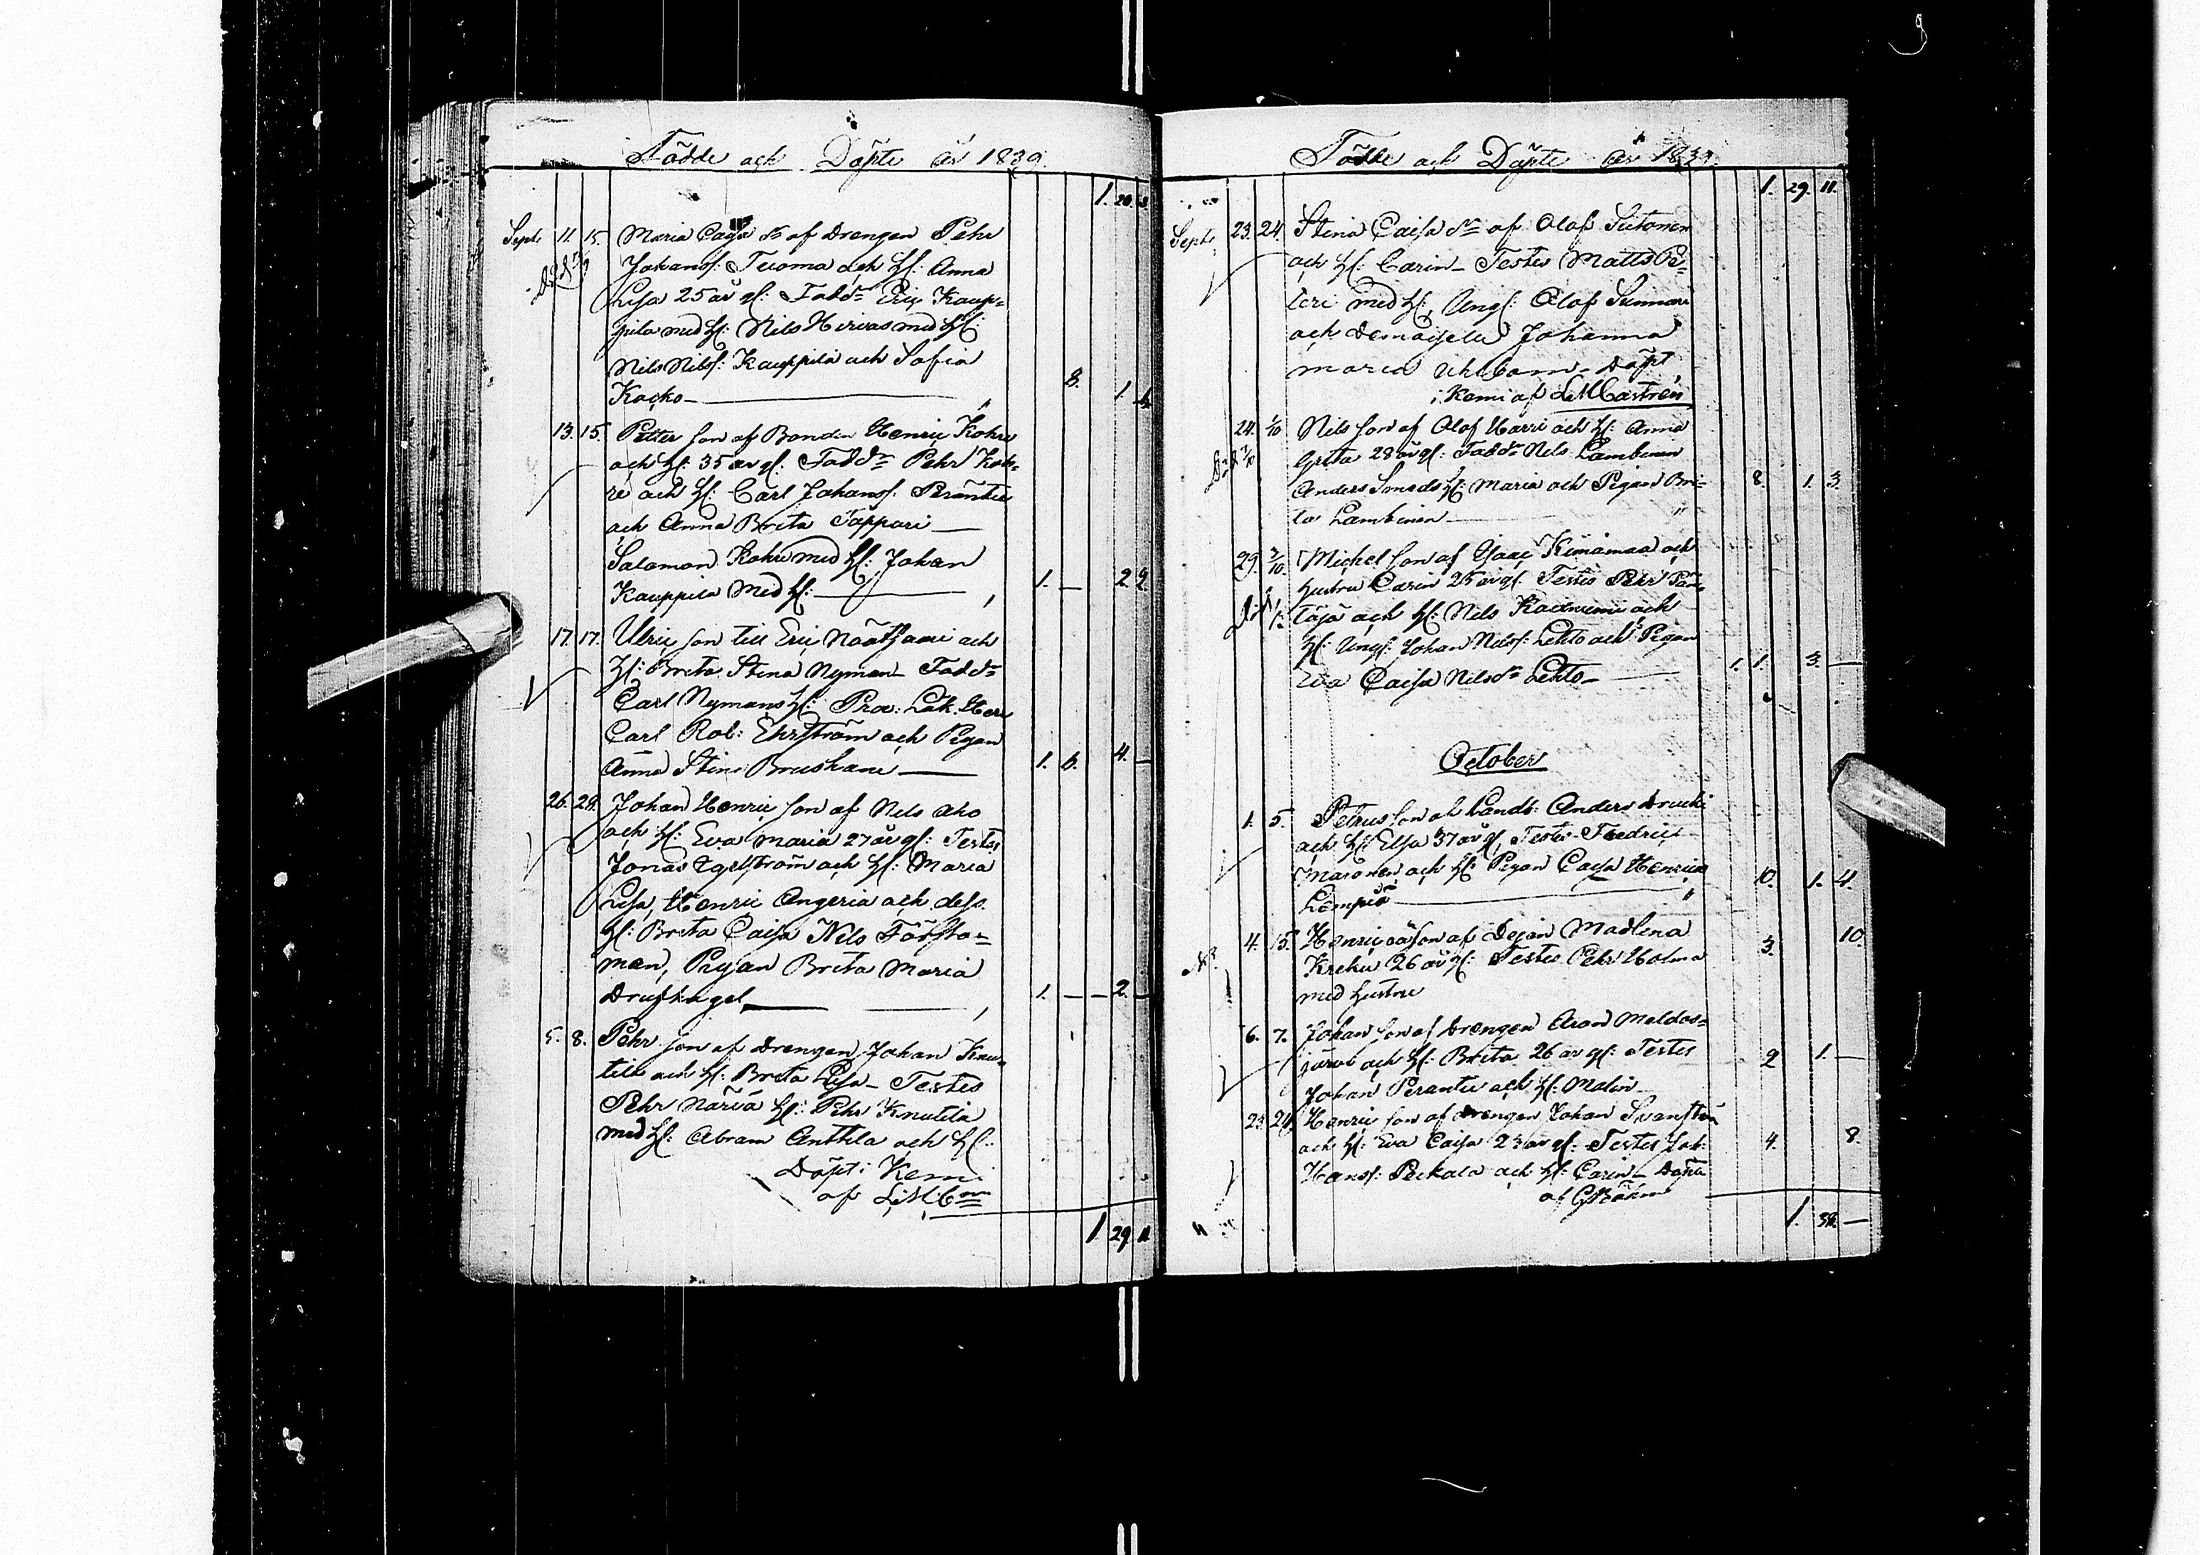 Födde och Döpte år 1839.
1. 20.
Sept. 11. 15. Maria Cajsa dr af Drengen Pehr
Johanss: Tuoma och H: Anna
Lisa 25 år gl: Fadd: Eric Kaup=
pila med H: Nils Hirvas med H:
Nils Nilss: Kauppila och Sofia
Kacko — 8. 1
13. 15. Petter son af Bonden Henric Kohre
och H: 35 år gl: Fadd: Pehr Koh=
re och H: Carl Johanss: Peräntie
och Anna Brita Tappari —
Salomon Kohre med H: Johan
Kauppila med H: — 1. — 2
17. 17. Ulric son till Eric Näätsaari och
H: Brita Stina Nyman — Fadd:
Carl Nymans H: Prov: Läk. Herr
Carl Rob: Ehrström och Pigan
Anna Stina Bruskane — 1. 6. 4. —
26. 28. Johan Henric son af Nils Aho
och H: Eva Maria 27 år gl: Testes
Jonas Egelström och H: Maria
Lisa, Henric Angeria och dess
H: Brita Caisa Nils Törsto=
man, Pigan Brita Maria
Drufhagel — 1. — — 2. —
5. 8. Pehr son af Drengen Johan Knu=
tila och H: Brita Lisa — Testes
Pehr Närvä H: Pehr Knutila
med H: Abram Anttila och H:
Döpt i Kemi
af
1 29 11
Födde och Döpte år 1839.
1. 29. 11.
Sept. 23. 24. Stina Caisa dr af Olof Siitonen
och H: Carin — Testes Matts Pe=
teri med H, Ungk: Olof Suinari
och Demoiselle Johanna
Maria Döpt
i Kemi af Castrén
24. 1/10 Nils son af Olof Harri och H: Anna
Greta 28 år gl: Fadd: Nils Lambinen
Anders Smeds H: Maria och Pigan Bri=
ta Lambinen — 8. 1. 3.
29. 2/10. Michel son af Isaac Kinämaa och
hustru Carin 25 år gl: Testes Pehr Pör=
täjä och H: Nils Kaurainnen och
H: Ungk: Johan Nilss: Lehto och Pigan
Eva Caisa Nilsdr Lehto — 1. 1. 3. —
October
1. 5. Petrus son af Landb: Anders Drucki
och H: Elsa 37 år gl, Testes Fredric
Maronen och H: Pigan Caisa Henrica
Lempiä — 10. 1. 4.
4. 15. Henric oä son af Dejan Madlena
Kreku 26 år gl: Testes Pehr Holma 3. 10
med hustru
6. 7. Johan son af Drengen Aron Meldos=
järvi och H: Brita 26 år gl: Testes 9 1. —
Johan Perantie och H: Malin
23. 24. Henric son af Drengen Johan Svanström
och H: Eva Caisa 23 år gl: Testes Joh:
Hanss: Peckala och H: Carin — Döpte 4. 8.
af
1. —